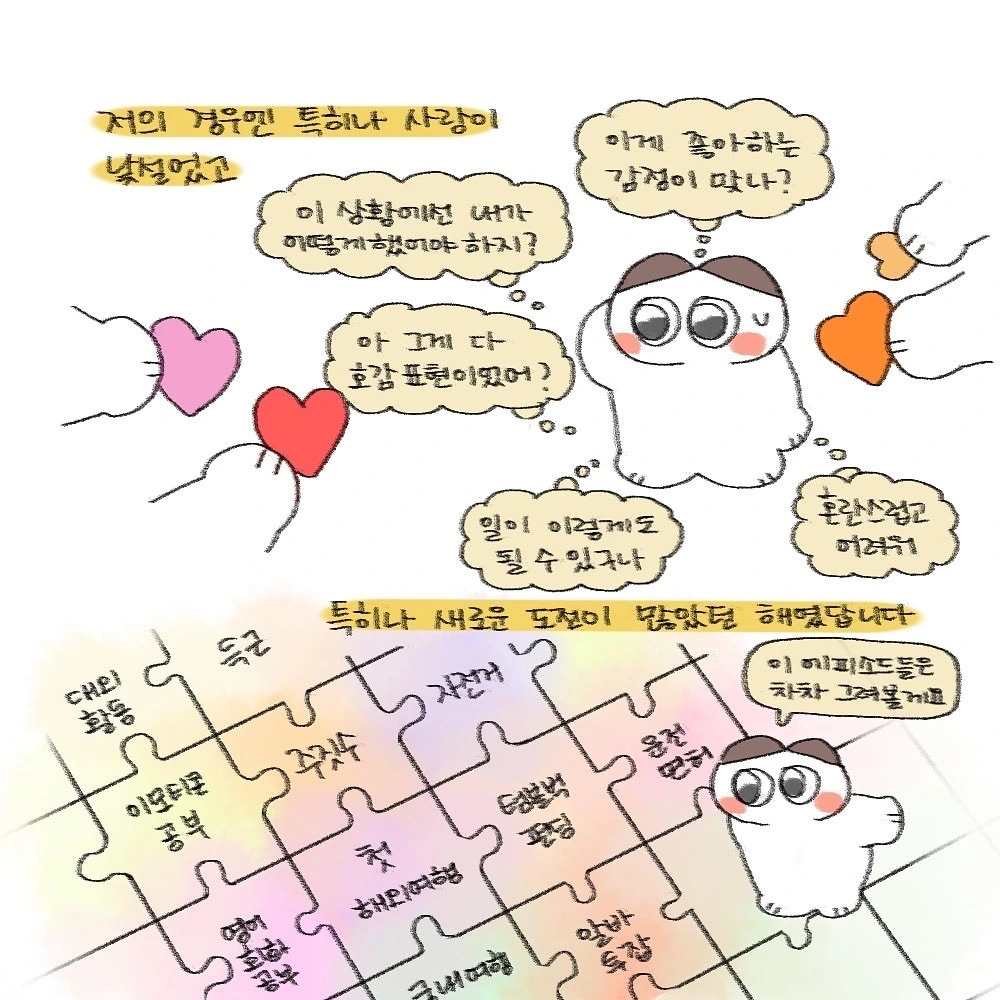 저의 경우엔 특히나 사랑이
낯설었고
이게 좋아하는
감정이 맞나?
이 상황에선 내가
어떻게했어야 하지?
아 그게 다
호감표현이었어?
일이 이렇게도
될 수 있구나
혼란스럽고
어려워
특히나 새로운 도전이 많았던 해였답니다
이 에피소드들은
차차 그려볼게요
대외
활동
득근
자전거
이모티콘
공부
주짓수
운전
면허
텀블벅
펀딩
첫
해외여행
영어
회화
공부
국내여행
알바
특집